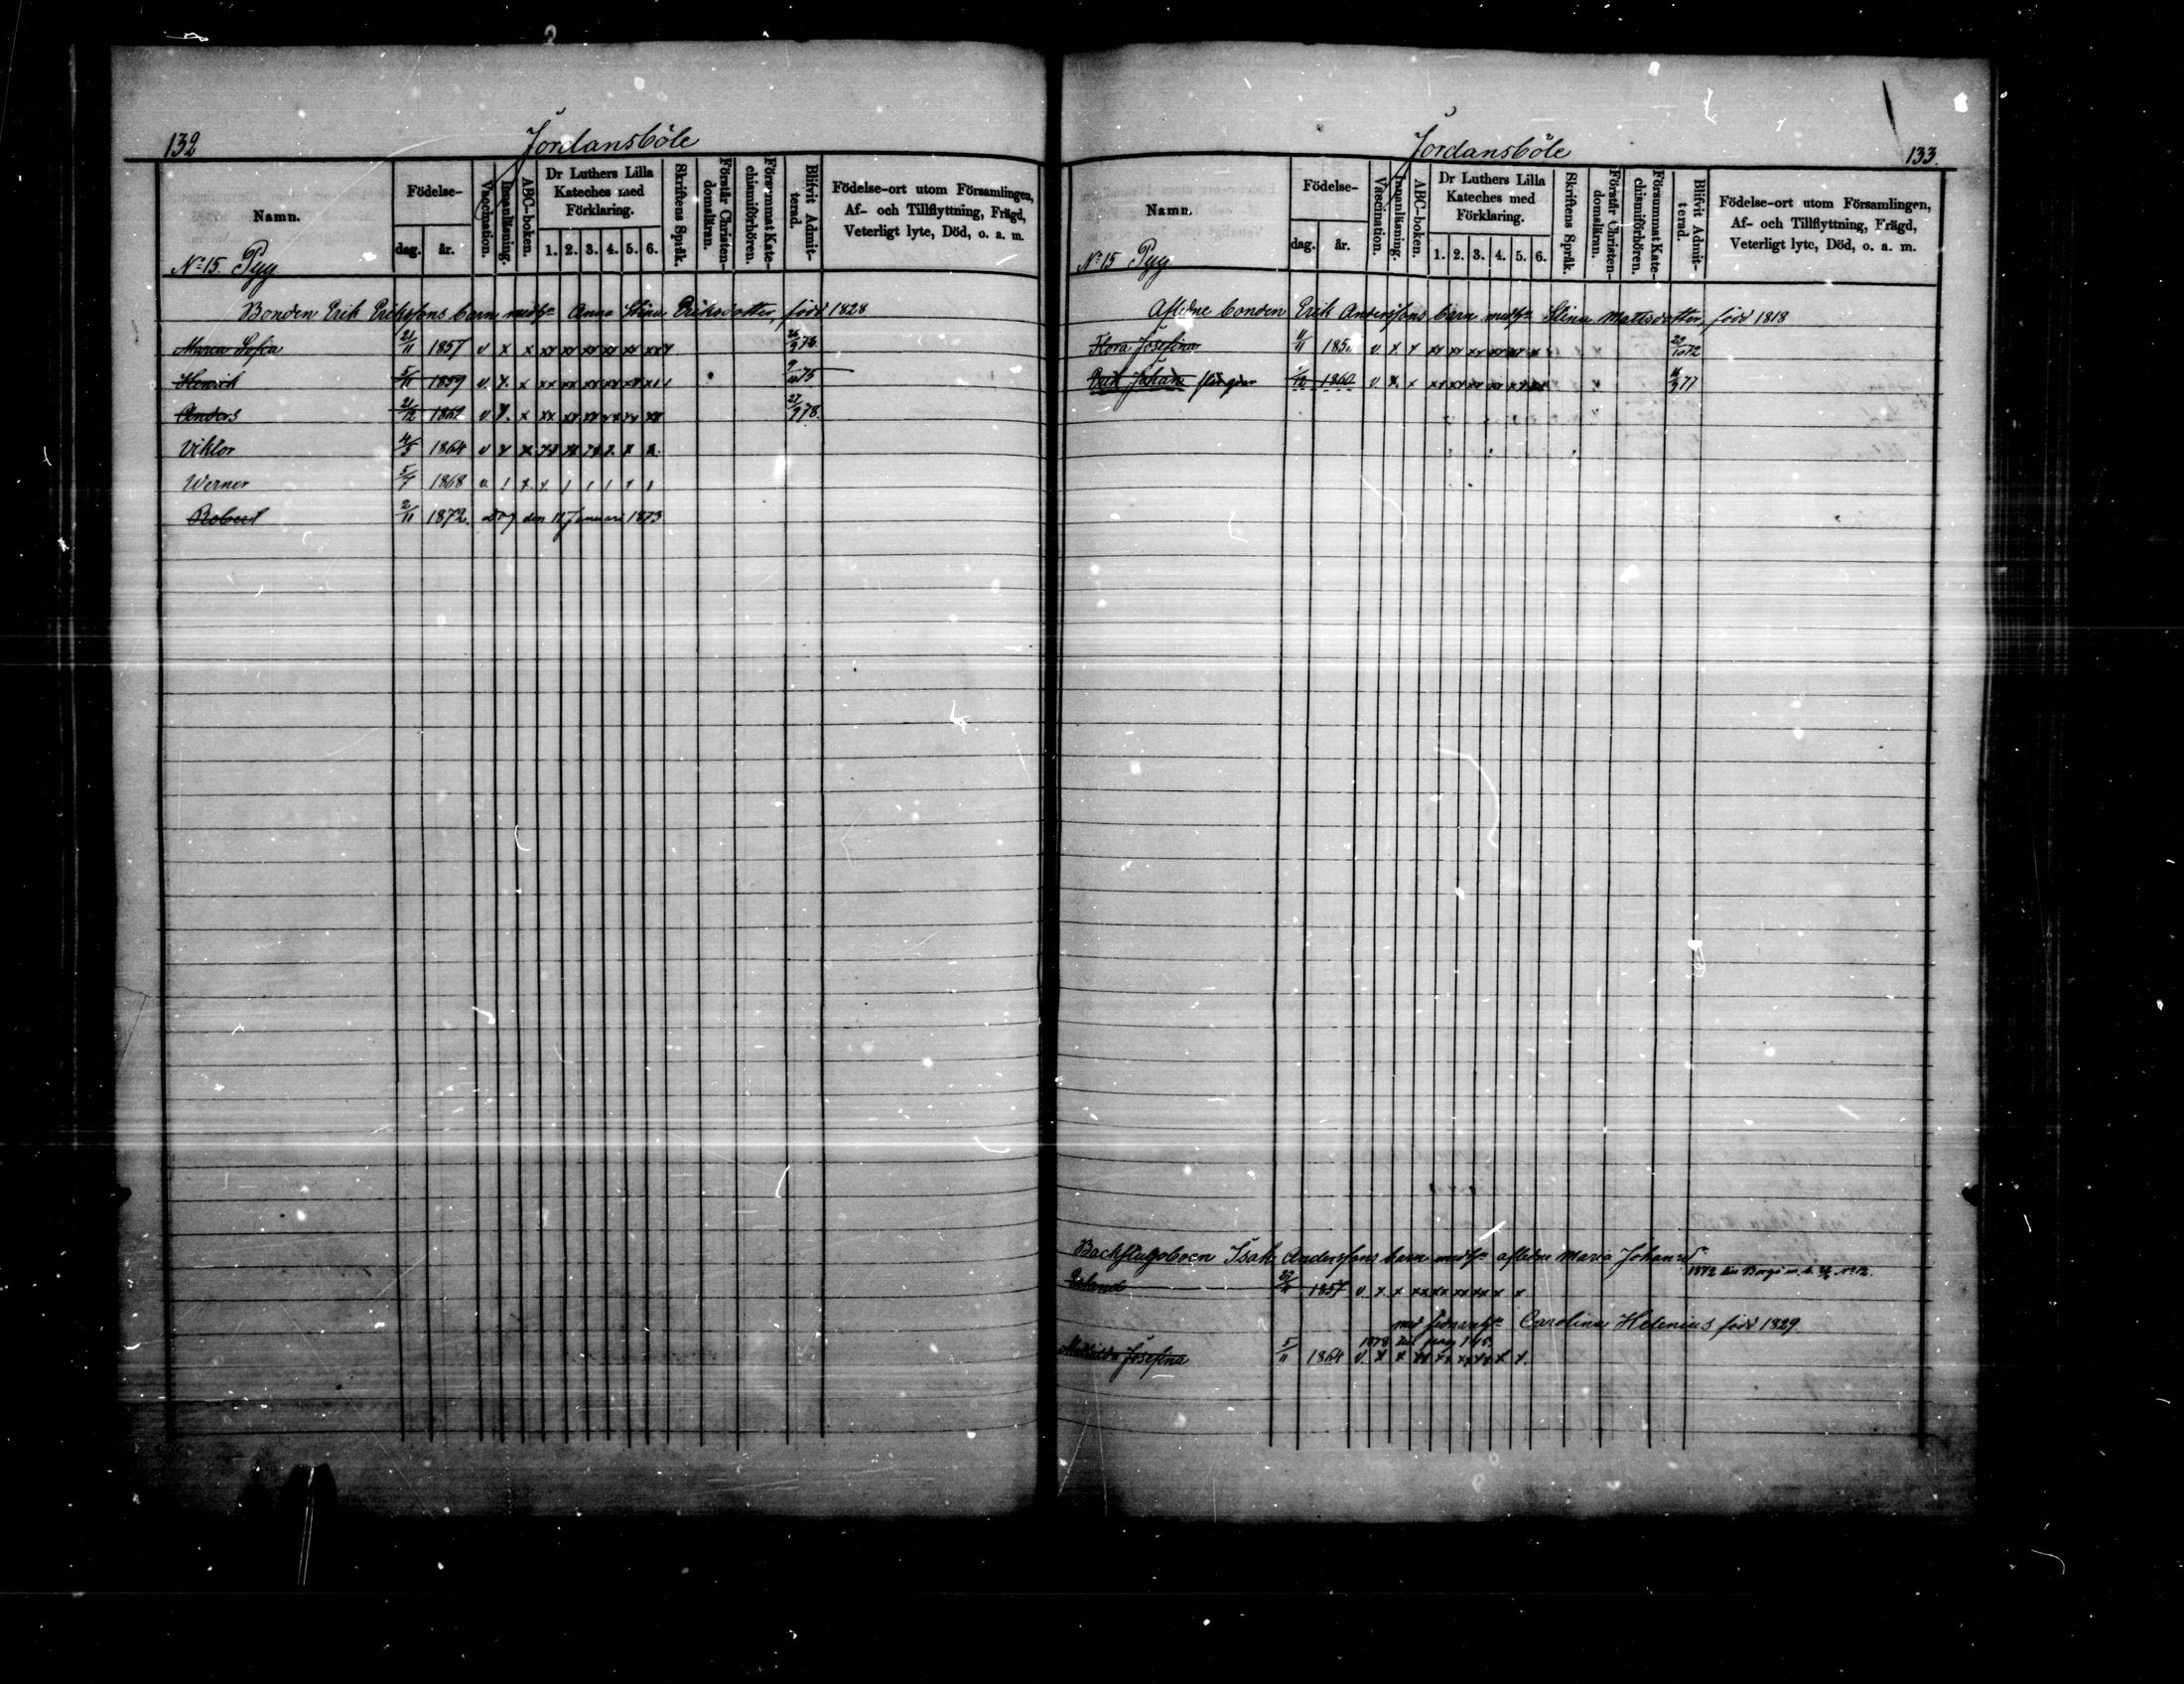 132
Jordansböle
Namn.
Födelse-
dag.
år.
Vaccination.
Innanläsning.
ABC-boken.
Dr Luthers Lilla
Kateches med
Förklaring.
1. 2. 3. 4. 5. 6.
Skriftens Språk.
Förstår Christen-
domsläran.
Försummat Kate-
chismiförhören.
Blifvit Admit-
terad.
Födelse-ort utom Församlingen,
Af- och Tillflyttning, Frägd,
Veterligt lyte, Död, o. a. m.
No 15. Pyg
Bonden Erik Erikssons barn med hu Anna Stina Eriksdotter, född 1828
Maria Sofia 21/11 1857 v x x xx xx xx xx xx xxx 26/9 73
Henrik 5/11 1859 v x x xx xx xx xx xx 9/10 75
Anders 21/12 1862 v x x xx xx xx xx xx xx 27/9 78.
Viktor 4/5 1864 v x x xx xx xx x x x
Werner 5/7 1868 v
Robert 2/11 1872. dog den 11 Januari 1873
Jordansböle
133.
Namn.
Födelse-
dag.
år.
Vaccination.
Innanläsning.
ABC-boken.
Dr Luthers Lilla
Kateches med
Förklaring.
1. 2. 3. 4. 5. 6.
Skriftens Språk.
Förstår Christen-
domsläran.
Försummat Kate-
chismiförhören.
Blifvit Admit-
terad.
Födelse-ort utom Församlingen,
Af- och Tillflyttning, Frägd,
Veterligt lyte, Död, o. a. m.
No 15 Pyg
Aflidne bonden Erik Anderssons barn med hu Stina Mattsdotter, född 1818
Flora Josefina v x x xx xx xx xx xx x 29/10 72
Johan 1860 v x x xx xx xx xx xx 16/9 77
Backstugoboen Isak Anderssons barn med hu aflidne Maria Johansd
1872 till Borgå
1857 v x x xx xx xx xx x x
med Carolina Helenius född 1829
1878 till pag
Mathilda Josefina 5/11 1864 v x x xx xx xx xx x x